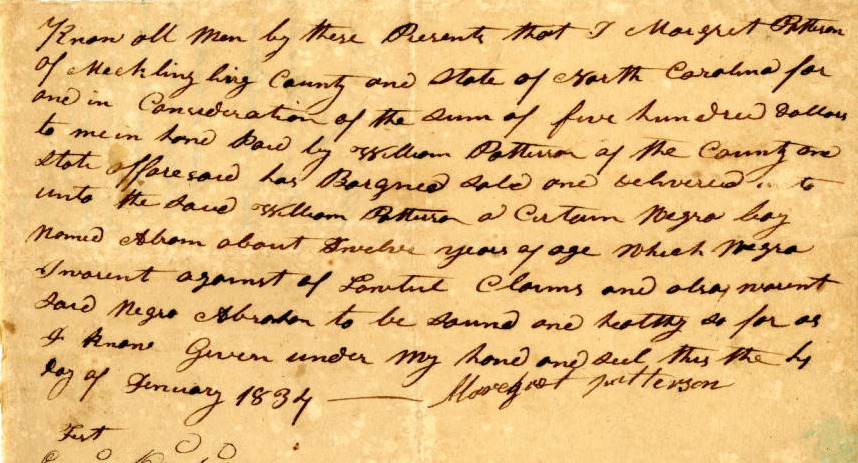 Know all men by these Presents that I Margret Patterson
of Mecklingling County and State of North Carolina for
and in Consideration of the Sum of five hundred dollars
to me in hand Paid by William Patterson of the County and
State afforesaid has Bargned Sold and delivered to
unto the Said William Patterson a Certain Negro boy
Named Abram about Twelve years of age Which Negro
I warent against of Lawful Claims and also warent
Said Negro Abraham to be Sound and healthy so far as
I know Given under my hand and Seel this the
day of Jenuary 1834 Margret Patterson
Test